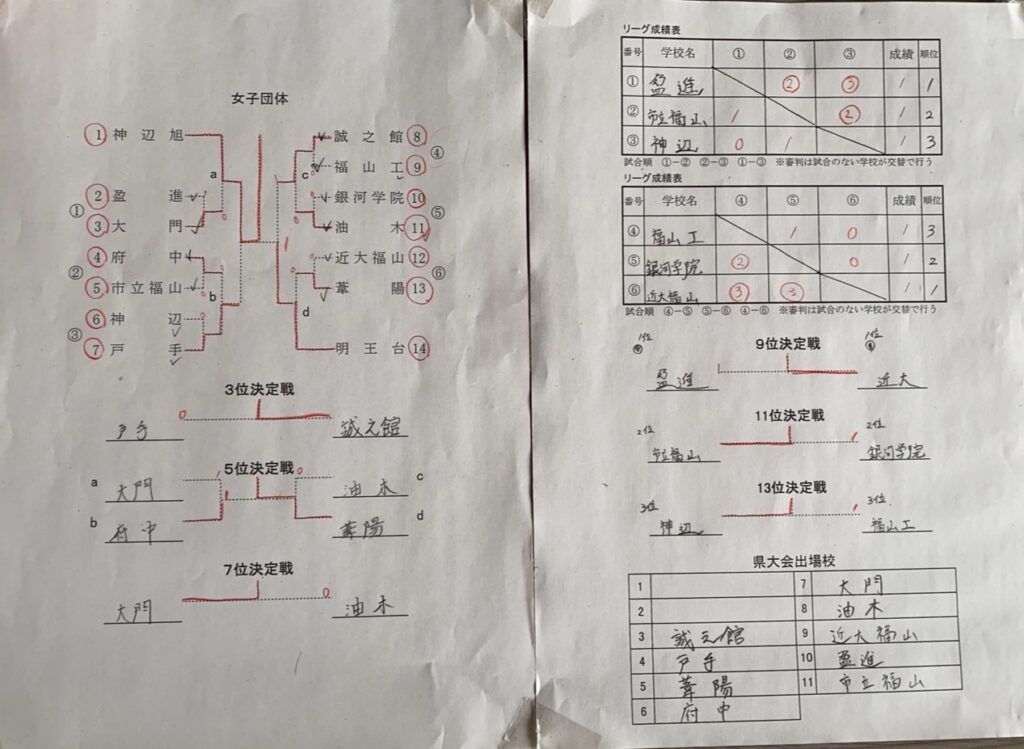 女子団体
① 神辺旭
② 盈進
③ 大門
④ 府中
⑤ 市立福山
⑥ 神辺
⑦ 戸手
① ② ③
a
b
誠之館 ⑧
福山工 ⑨
銀河学院 ⑩
油木 ⑪
近大福山 ⑫
葦陽 ⑬
明王台 ⑭
④ ⑤ ⑥
c
d
0 0 0 0 0 0 0 1
3位決定戦
0
戸手 誠之館
5位決定戦
a 大門 1 0 油木 c
b 府中 1 葦陽 d
7位決定戦
大門 0 油木
リーグ成績表
番号 学校名 ① ② ③ 成績 順位
① 盈進 ② ③ / 1
② 市立福山 1 ② / 2
③ 神辺 0 1 / 3
試合順 ①－② ②－③ ①－③ ※審判は試合のない学校が交替で行う
リーグ成績表
番号 学校名 ④ ⑤ ⑥ 成績 順位
④ 福山工 1 0 / 3
⑤ 銀河学院 ② 0 / 2
⑥ 近大福山 ③ ③ / 1
試合順 ④－⑤ ⑤－⑥ ④－⑥ ※審判は試合のない学校が交替で行う
1位 9位決定戦 1位
盈進 1 近大
2位 11位決定戦 2位
市立福山 1 銀河学院
3位 13位決定戦 3位
神辺 1 福山工
県大会出場校
1 7 大門
2 8 油木
3 誠之館 9 近大福山
4 戸手 10 盈進
5 葦陽 11 市立福山
6 府中